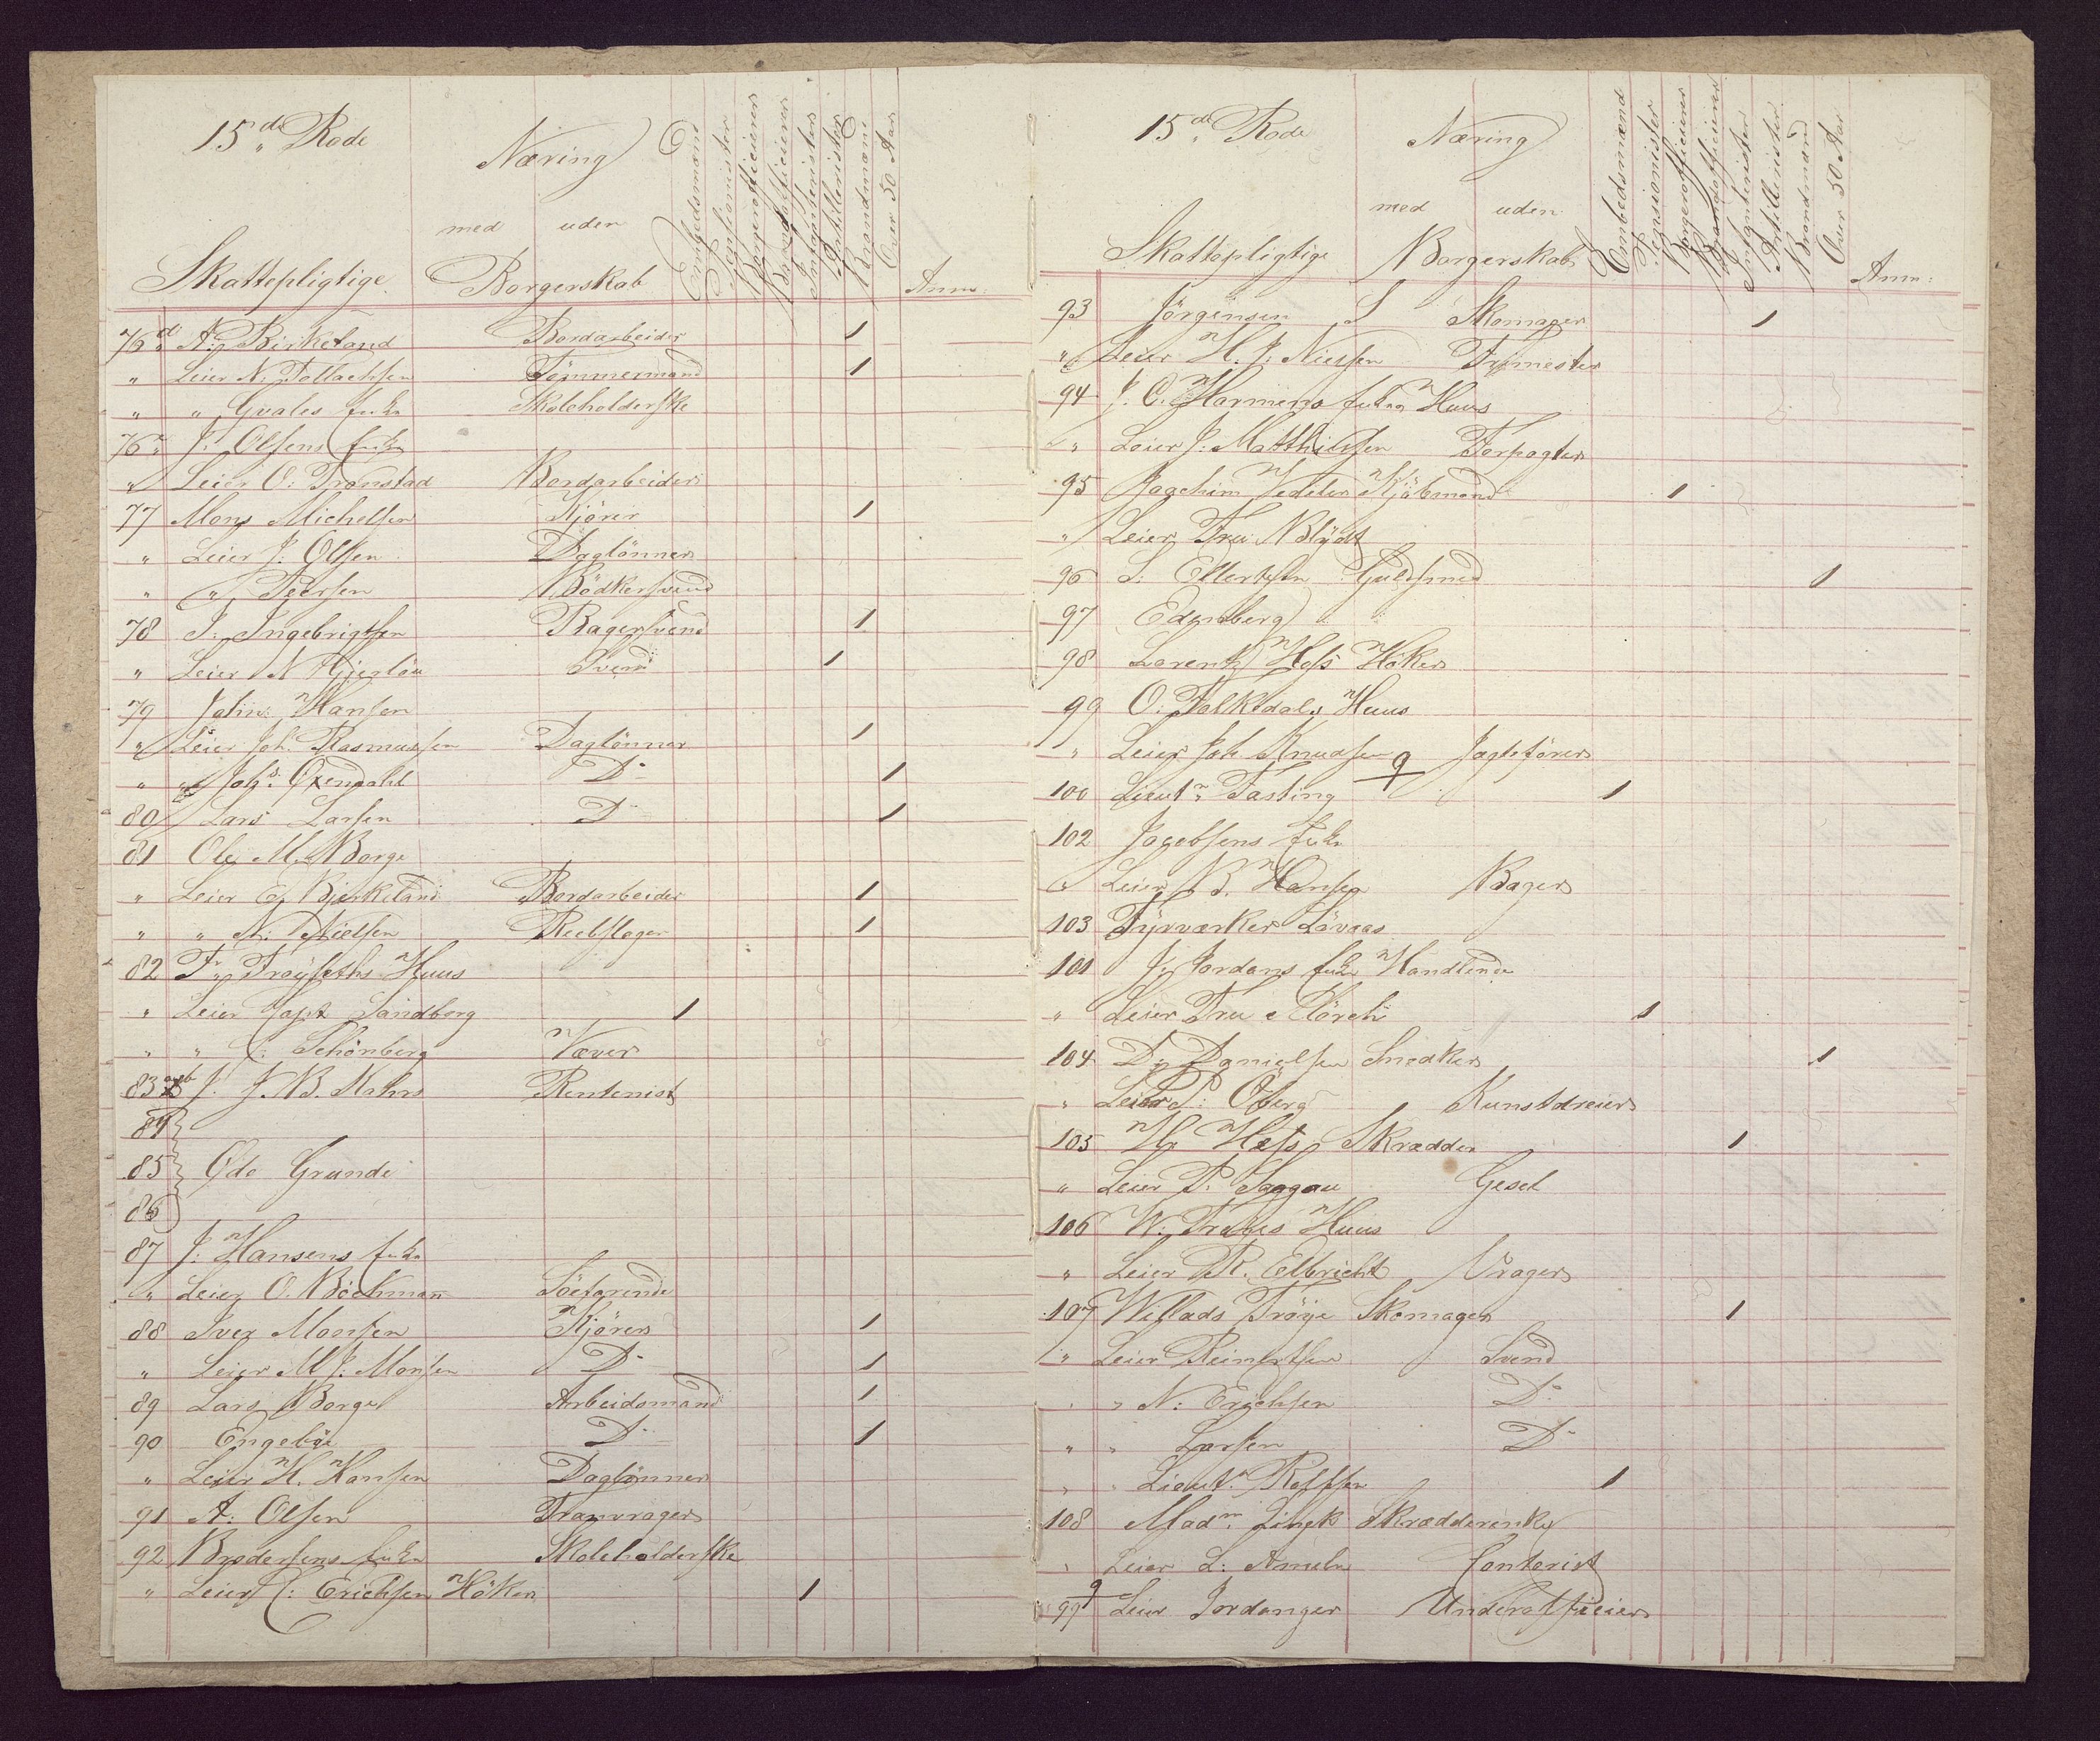 15de Rode
Næring
med uden
Skattepligtige Borgerskab Embedsmænd Pensionister Borgerofficierer Brandofficierer Infanterister Artillerister Brandmænd Over 50 Aar Anm:
76d A: Birkeland Bordarbeider 1
" Leier N. Tollachsen Tömmermand 1
" " Gvales Enke Skoleholderske
76e J: Olsens Enke
" Leier O. Tronstad Bordarbeider
77 Mons Michelsen Kjörer 1
" Leier J. Olsen Daglönner
" " Peersen Bödkersvend
78 J. Ingebrigtsen Bagersvend 1
" Leier N Svend 1
79 Johs: Hansen
" Leier Joh. Rasmussen Daglönner 1
" " Johs: Oxendahl Do 1
80 Lars Larsen Do 1
81 Ole M. Borge
" Leier E. Bjerkeland Bordarbeider 1
" " N. Nielsen Reebslager 1
82 Fr. Fröyseths Huus
" Leier Capt Sandberg 1
" " C: Schönberg Væver
83 ab J. J. B. Mahrs Rentenist
84
85 Öde Grunde
86
87 J: Hansens Enke
" Leier O. Böckmann Söefarende
88 Iver Monsen Kjörer 1
" Leier M. J. Monsen Do 1
89 Lars Borge Arbeidsmand 1
90 Engeböe Do 1
" Leier H. Hansen Daglönner
91 A: Olsen Tranvrager
92 Brodersens Enke Skoleholderske
" Leier C: Erichsen Höker 1
15de Rode
Næring
med uden
Skattepligtige Borgerskab Embedsmænd Pensionister Borgerofficierer Brandofficierer Infanterister Artillerister Brandmænd Over 50 Aar Anm:
93 Jörgensen S Skomager 1
" Leier H. J. Nielsen Fyrmester
94 J. C. Harmens Enkes Huus
" Leier J. Matthiesen Forpagter
95 Joachim Vedeler Kjöbmand 1
" Leier Fru Blÿdt
96 S. Ellertsen Guldsmed 1
97 Edenberg
98 Lorentz Hess Höker
99 O. Folkedals Huus
" Leier Joh Knudsen 9 Jagteförer
100 Lieutn Fasting 1
102 Jacobsens Enke
" Leier B. Hansen Bager
103 Fÿrværker Lövaas
101 J. Jordans Enke Handlende
" Leier Fru Körch 1
104 D. Danielsen Snedker 1
" Leier P. Öberg Kunstdreier
105 H. Hess Skrædder 1
" Leier P. Saggau Gesel
106 W. Friis Huus
" Leier R. Elbricht Vrager
107 Willads Tröye Skomager 1
" Leier Reinertsen Svend
" " N: Erichsen Do
" " Larsen Do
" " Lieutn Rolfsen 1
108 Madm. Lingk Skrædderenke
" Leier L: Ameln Contorist
99 9 Leier Jordanger Underofficier